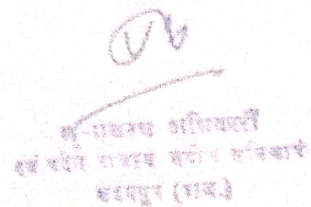 भू-प्रबन्ध अधिकारी
एवं पदेन राजस्व अपील
उदयपुर (राज.)